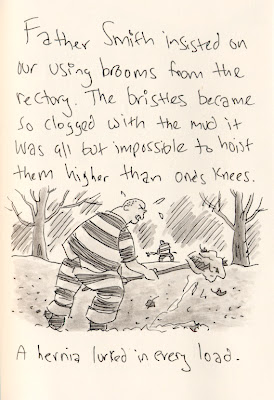 Father Smith insisted on
our using brooms from the
rectory. The bristles became
so clogged with the mud it
was all but impossible to hoist
them higher than one's knees.
A hernia lurked in every load.